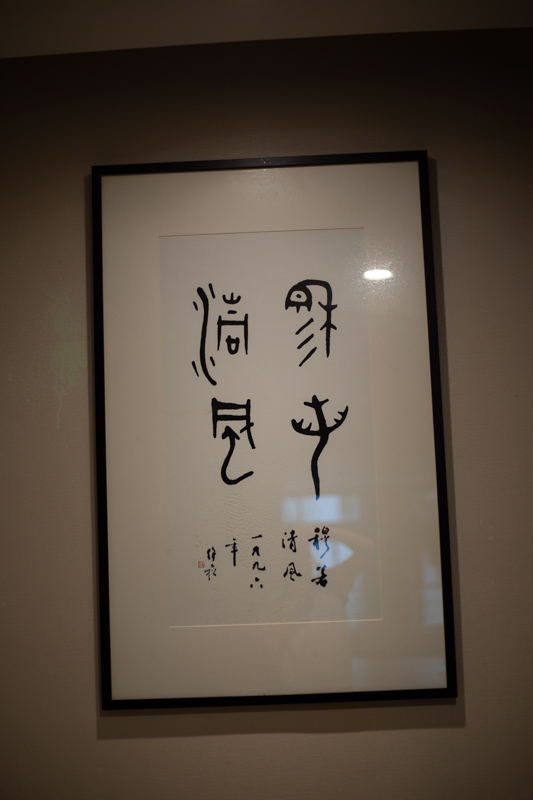 穆若
清風
穆若
清風
一九九六
年